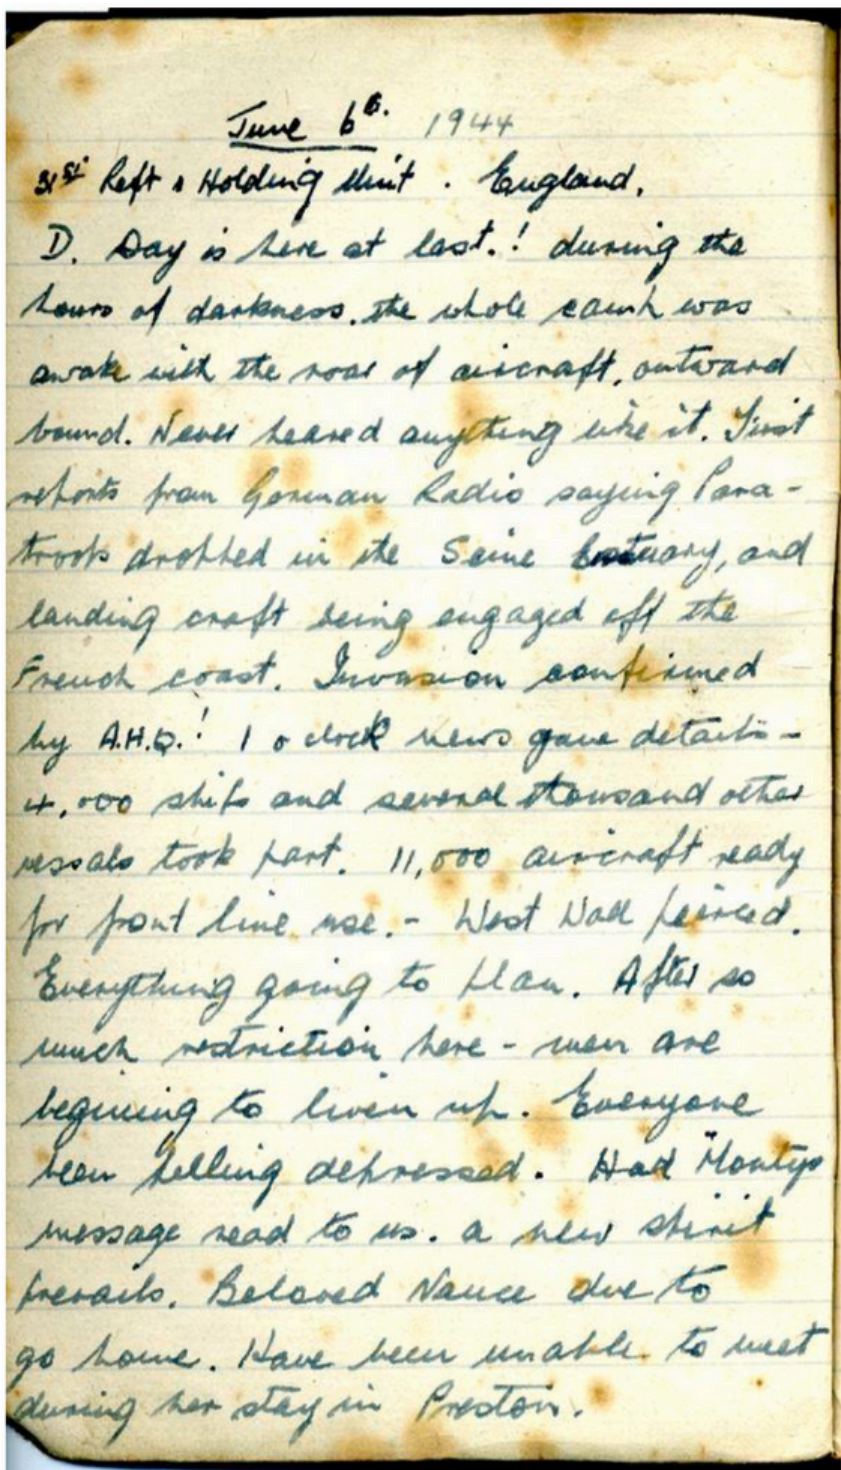 June 6th. 1944
31st Reft & Holding Unit. England.
D. Day is here at last.! during the
hours of darkness. the whole camp was
awake with the roar of aircraft, outward
bound. Never heared anything like it. First
reports from German Radio saying Para-
troops dropped in the Seine Estuary, and
landing craft being engaged off the
French coast. Invasion confirmed
by A.H.Q.! 1 o clock news gave details-
4,000 ships and several thousand other
vessals took part. 11,000 aircraft ready
for front line use. - West Wall peirced.
Everything going to plan. After so
much restriction here - men are
begining to liven up. Everyone
been felling depressed. Had "Montys
message read to us. a new spirit
prevails. Beloved Nance due to
go home. Have been unable to meet
during her stay in Preston.